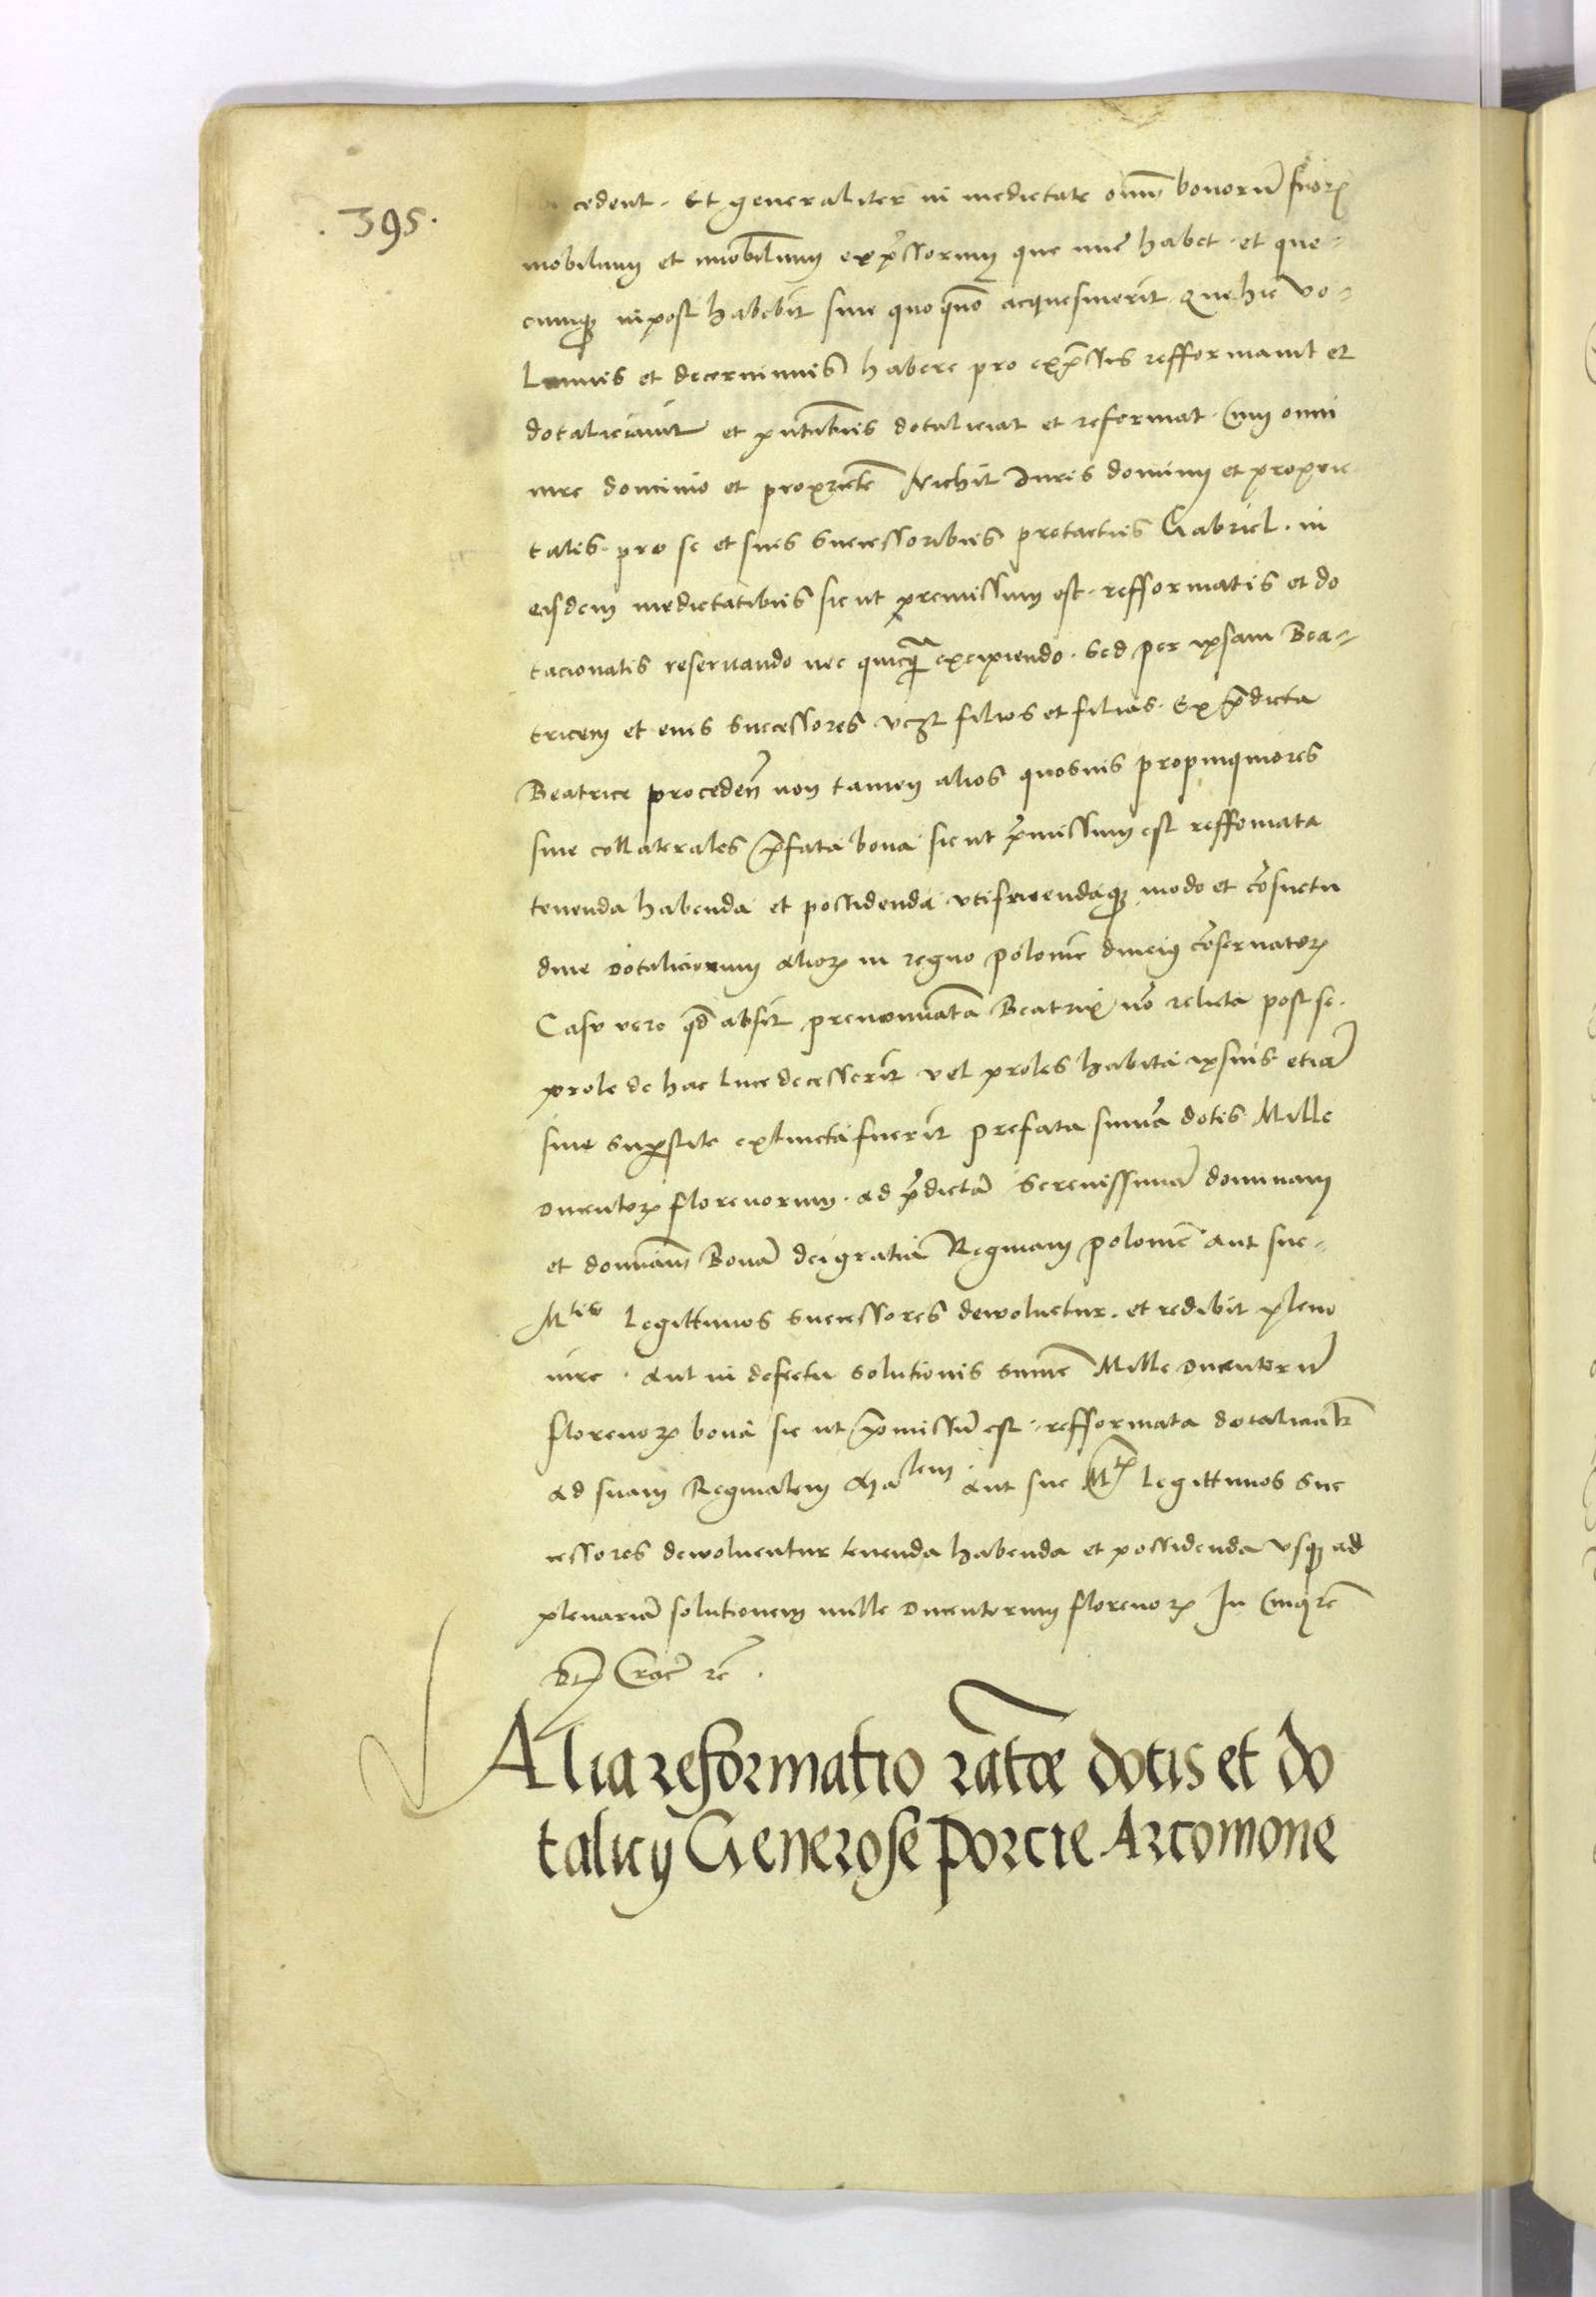 . 395 .
cedent. Et generaliter in medietate omniu bonoru suor
mobilium et imobilium expressorum que nunc habet et que-
cumq inpost habebit siue quoquo acquesiuerit. Que hic vo-
lumus et decernimus habere pro expressis refformauit et
dotaliciauit et pntibus dotaliciat et reformat. Cum omni
iure dominio et proprietate Nichil Iuris dominij et proprie
tatis. pro se et suis successoribus pretactus Gabriel. in
eisdem medietatibus sicut premissum est. refformatis et do
tacionatis reseruando nec quicq excipiendo. Sed per ipsam Bea-
tricem et eius successores vczt filios et filias. Ex predicta
Beatrice proceden non tamen alios quosuis propinquiores
siue collaterales prefata bona sicut premissum est reffomata
tenenda habenda et possidenda vtifruendaq modo et consuetu
dine dotaliciorum alior in regno polonie diucius conseruator
Casu vero qd absit prenominata Beatrix no relicta post se.
prole de hac luce decesserit vel proles habita ipsius etia
sine superstite extincta fuerit prefata summa dotis Mille
ducentor florenorum. ad predicta Serenissima dominam
et dominam Bona dei gratia Reginam polonie aut sue-
Mtis legittimos successores dewoluetur. et redibit pleno
iure. aut in defectu solutionis summe Mille ducentoru
florenor bona sicut premissu est. refformata dotaliciata
ad suam Reginalem Matem aut sue Mtis legittimos suc
cessores dewoluentur tenenda habenda et possidenda vsq ad
plenaria solutionem mille ducentorum florenor In Cuius rei
Dt Crac rc .
Alia reformatio ratoe dotis et do
talicij Generose Porcie Arcomone